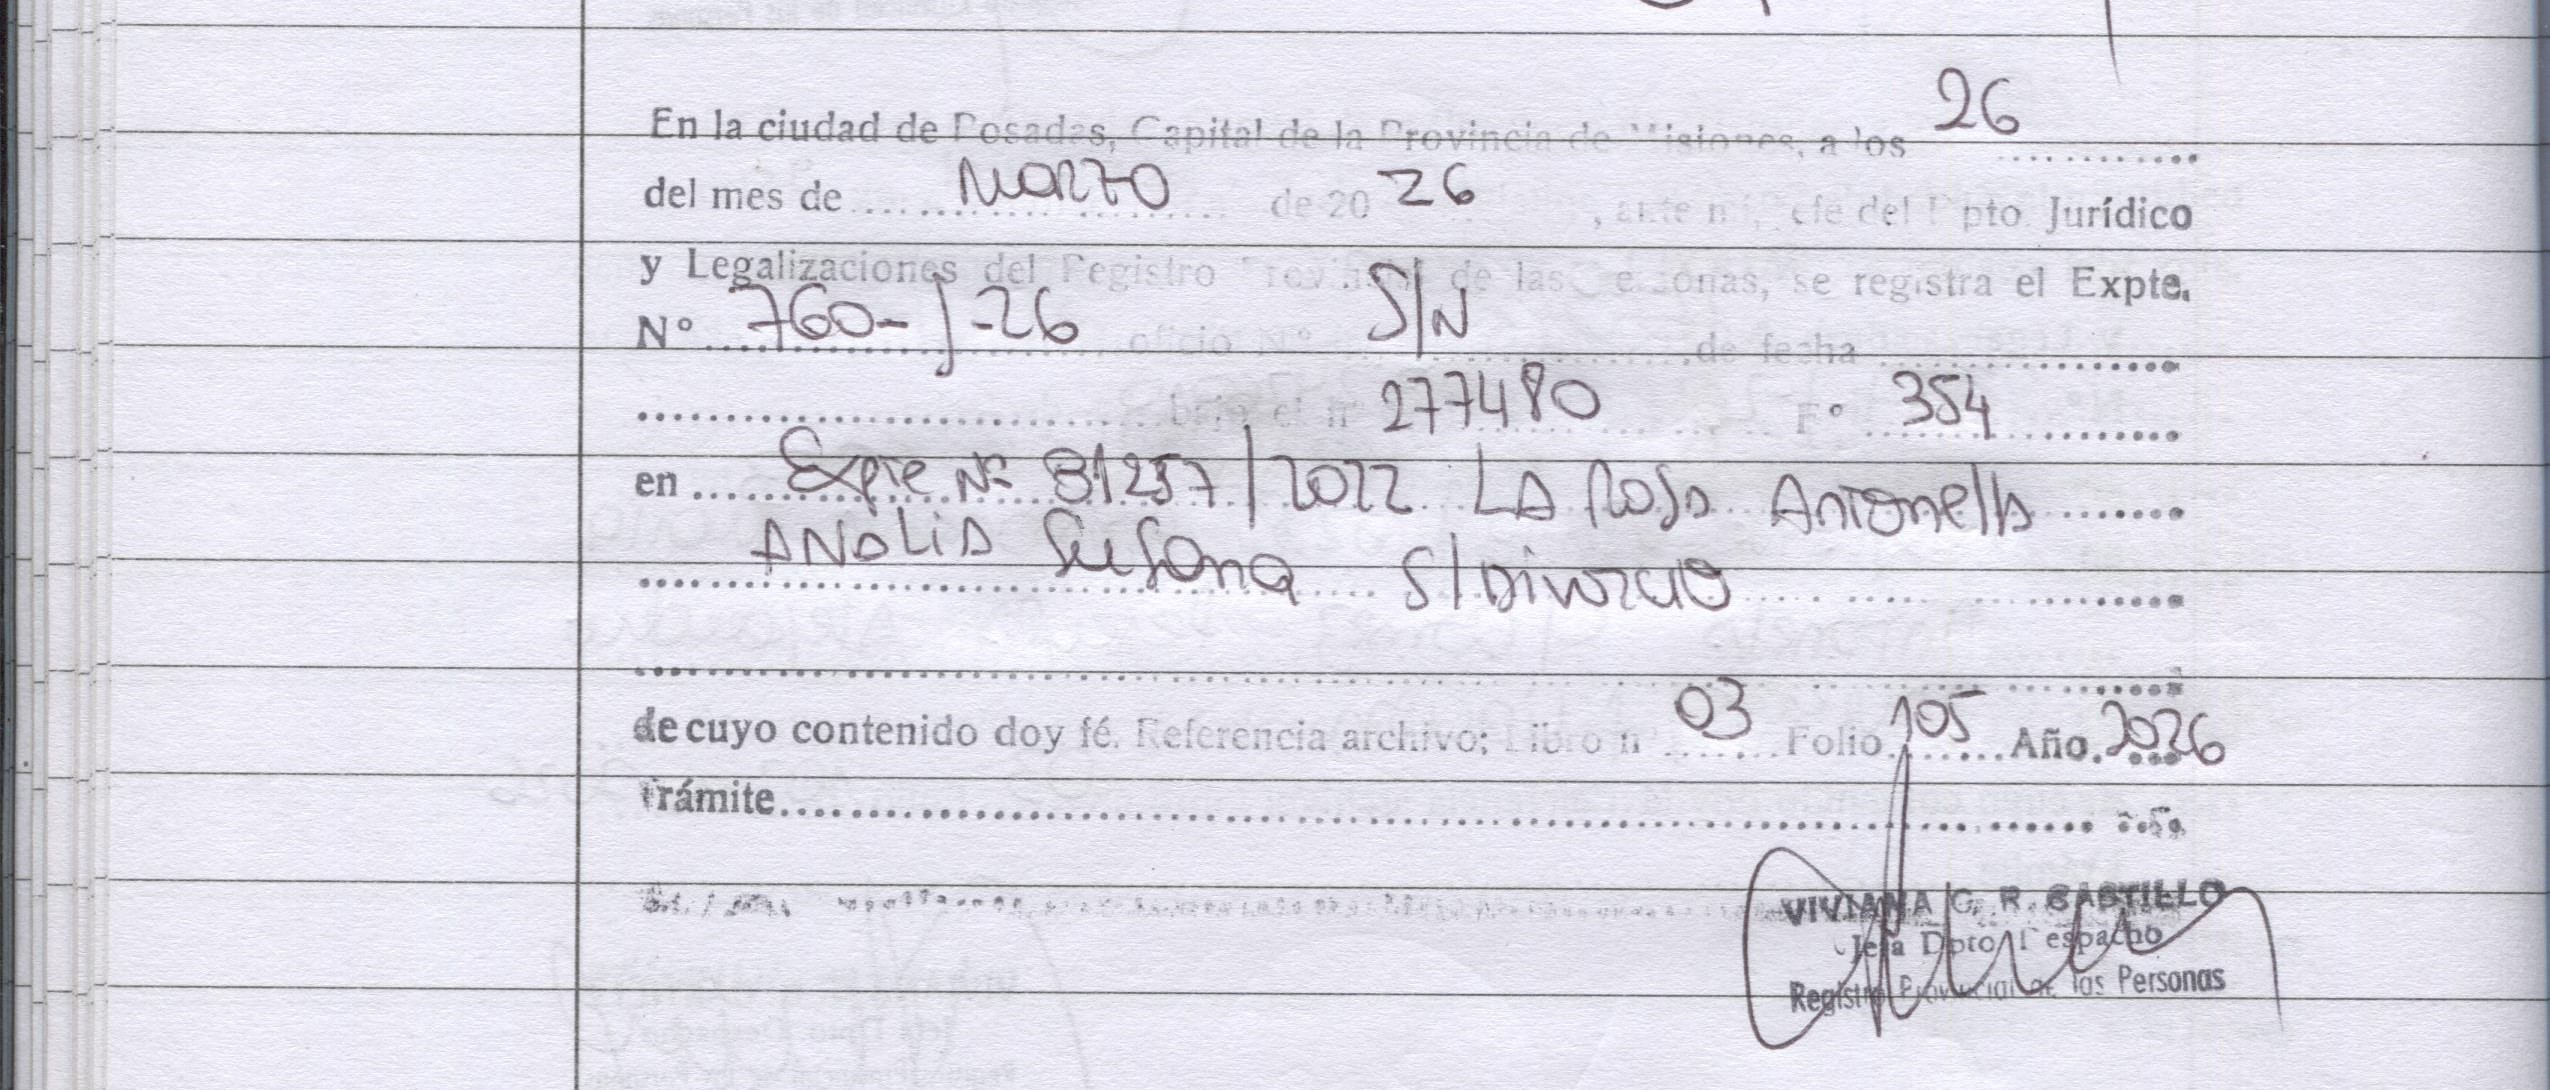 En la ciudad de Posadas, Capital de la Provincia de Misiones, a los 26
del mes de Marzo de 20 26, ante mi, Jefe del Dpto. Jurídico
y Legalizaciones del Registro Provincial de las Personas, se registra el Expte.
Nº 760-J-26 oficio Nº S/N de fecha
bajo el nº 277480 Fº 354
en Expte Nº 81257/2022 LA Rosa Antonella
ANALIA Susana S/Divorcio
de cuyo contenido doy fé. Referencia archivo: Libro nº 03 Folio 105 Año. 2026
Trámite
VIVIANA G. R. CASTILLO
Jefa Dpto. Despacho
Registro Provincial de las Personas